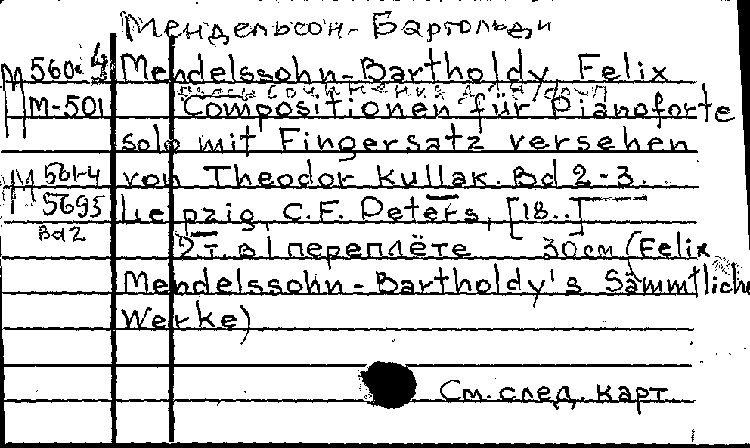 Мендельсон-Бартольди
М 560-4 Mendelssohn-Bartholdy, Felix
М-501 Compositionen für Pianoforte
solo mit Fingersatz versehen
М 561-4 von Theodor Kullak. Bd 2-3.
5695 Leipzig, C.F. Peters, [18..]
Bd 2 2 т. в 1 переплёте 30 см (Felix
Mendelssohn-Bartholdy's Sämmtliche
Werke)
См. след. карт.